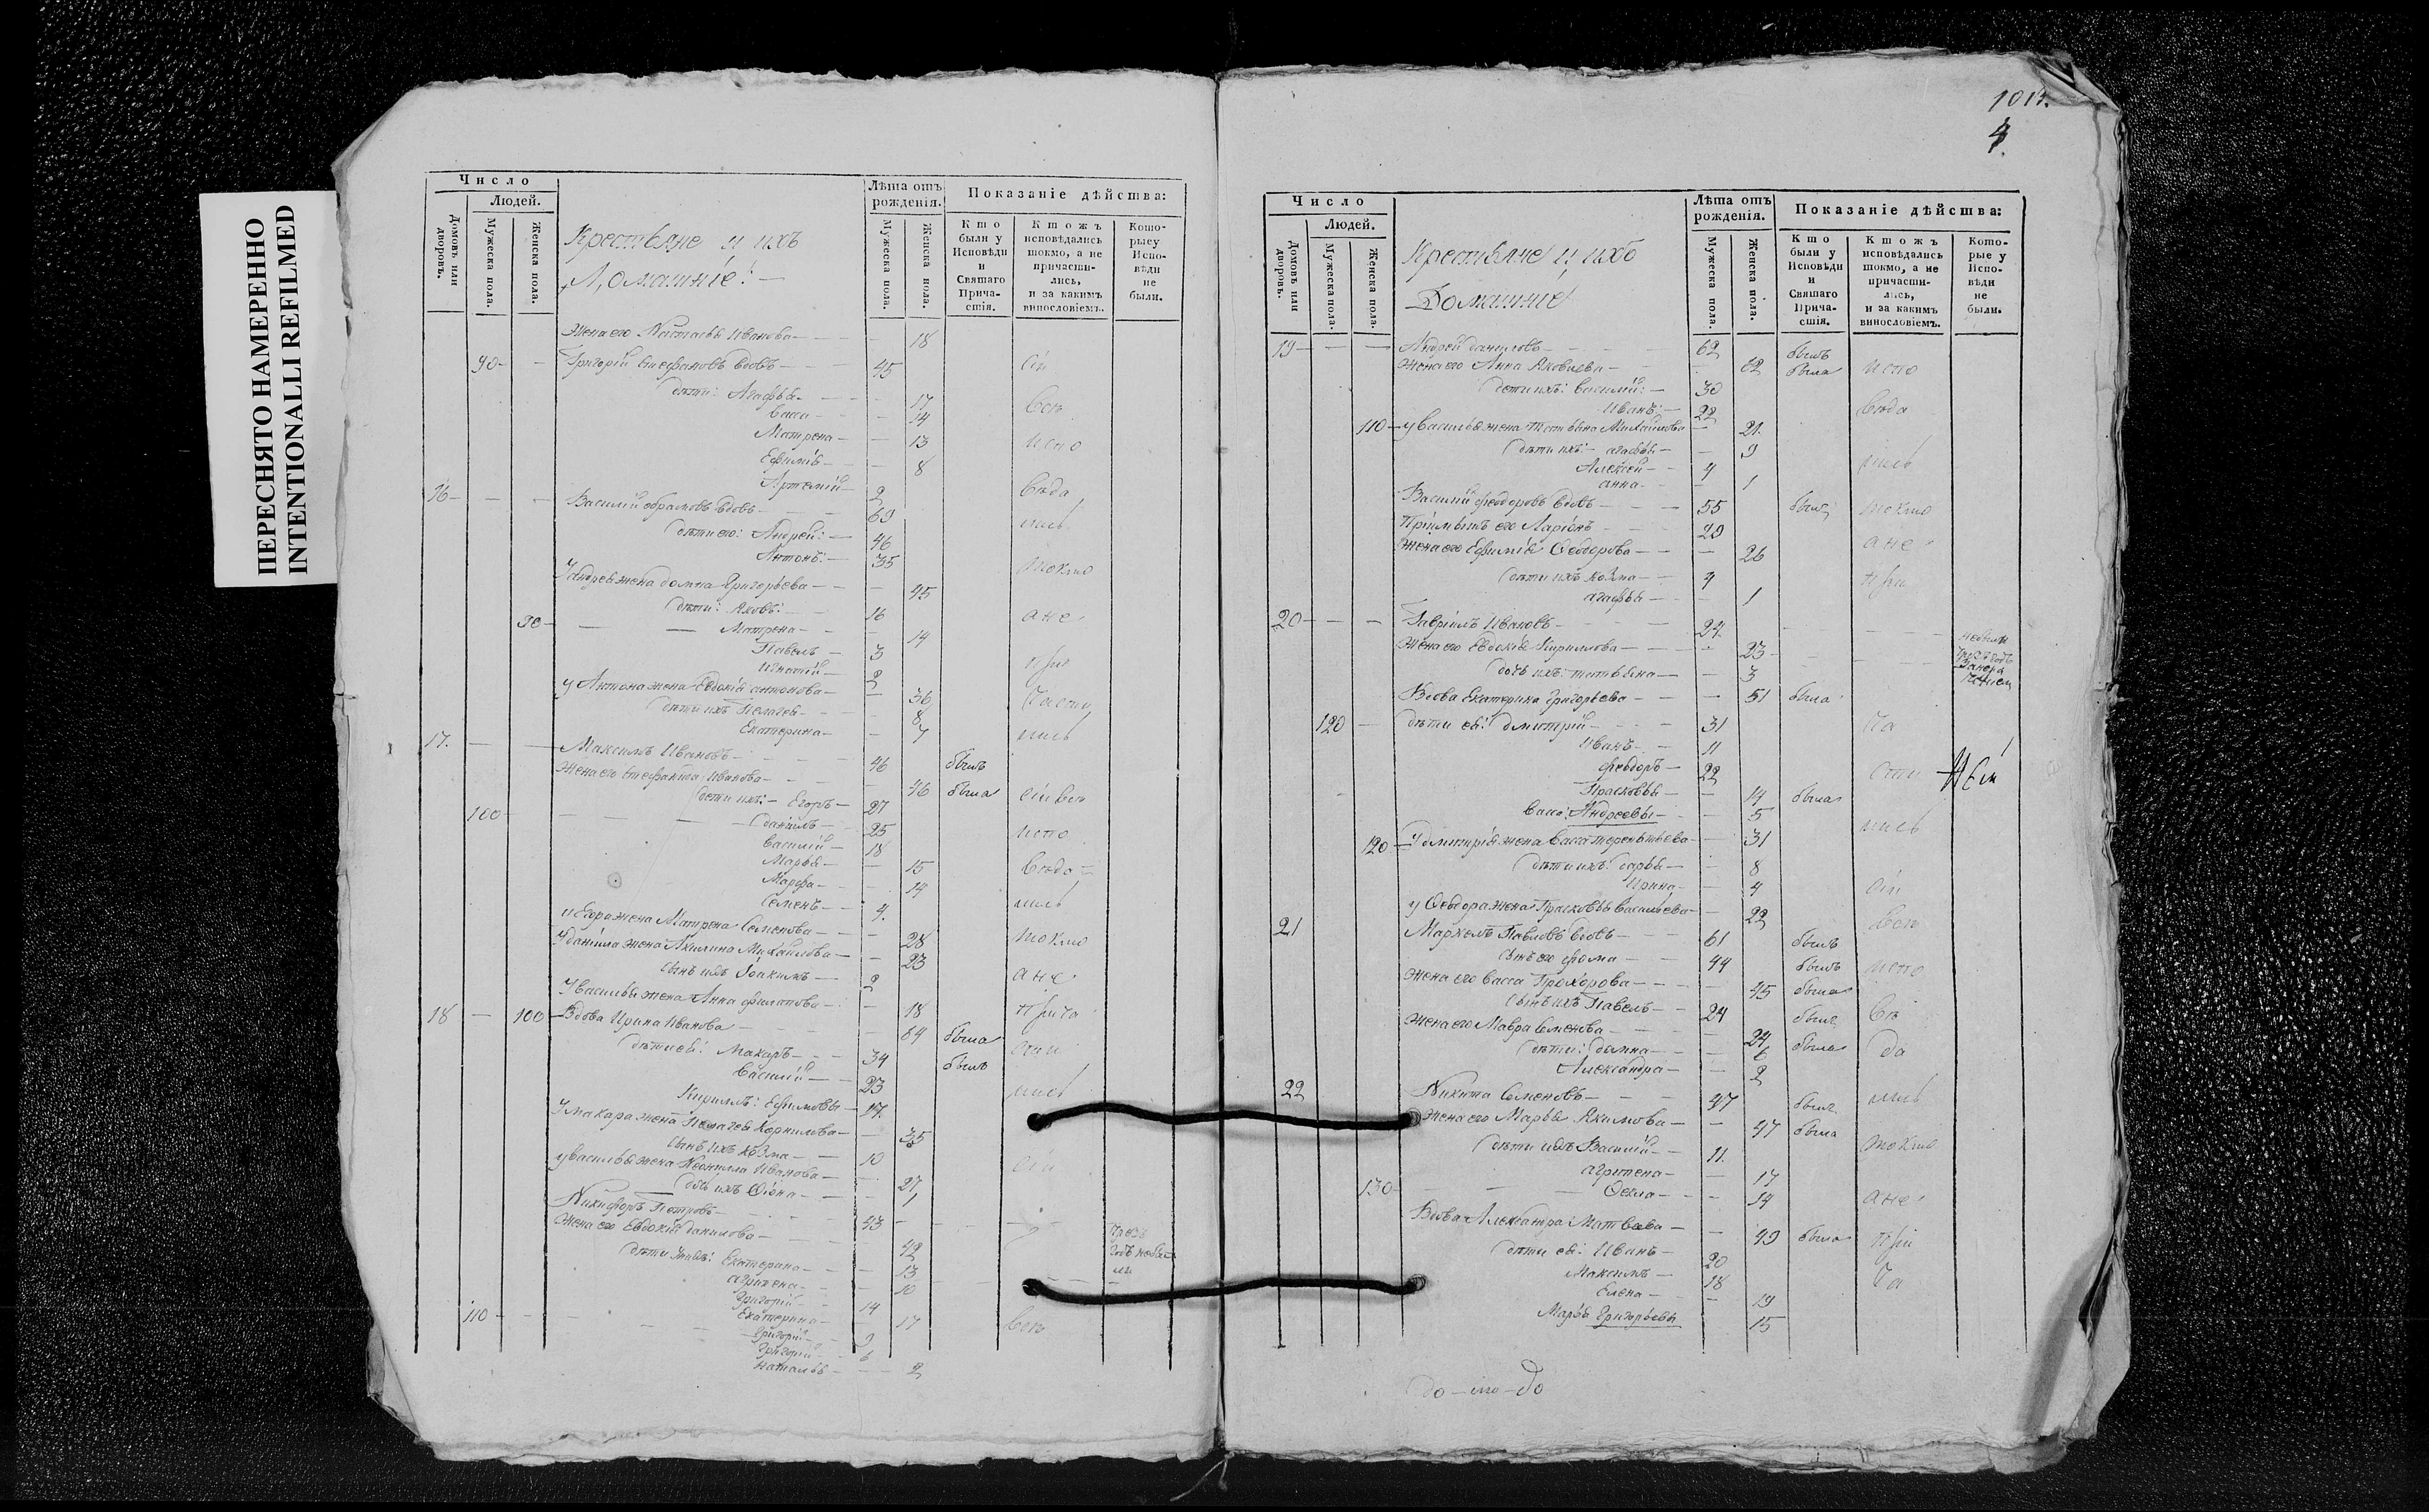 ПЕРЕСНЯТО НАМЕРЕННО
INTENTIONALLI REFILMED
Число
Домовъ или дворовъ.
Людей.
Мужеска пола.
Женска пола.
Крестьяне и ихъ
Домашніе:
Лѣта отъ рожденія.
Мужеска пола.
Женска пола.
Показаніе дѣйства:
Кто были у Исповѣди и Святаго Причастія.
Ктожъ исповѣдались токмо, а не причастились, и за какимъ винословіемъ.
Которые у Исповѣди не были.
Жена его Настасья Иванова 18
90 Григорій Стефановъ вдовъ 45 сіи
дѣти: Агафья 17 всѣ
Васса 14
Матрена 13 испо
Ефимія 8
Артемій 2 вѣда
16 Василій Абрамовъ вдовъ 69 лись
дѣти его: Андрей 46
Антонъ 35 токмо
У Андрея жена Домна Григорьева 45
дѣти: Яковъ 16 а не
90 Матрена 14
Павелъ 3 при
Игнатій 2
у Антона жена Евдокія Антонова 36 части
дѣти ихъ Пелагея 8
Екатерина 7 лись
17. Максимъ Ивановъ 46 былъ
Жена его Стефанида Иванова 46 была сіи всѣ
дѣти ихъ: Егоръ 27
100 Даніилъ 25 испо
Василій 18
Марья 15 вѣда
Марфа 14
Семенъ 4. лись
у Егора жена Матрена Семенова 28 токмо
У Даніила жена Акилина Михайлова 23
сынъ ихъ Іоакимъ 2 а не
У Василья жена Анна Филипова 18 прича
18 100 Вдова Ирина Иванова 64 была
дѣти ея: Макаръ 34 былъ сти
Василій 23 лись
Кирилъ: Ефимовы 17.
У Макара жена Пелагея Корнилова 35
сынъ ихъ Козма 10 сіи
у Василья жена Неонилла Иванова 27
дочь ихъ 1
Никифоръ Петровъ 43
Жена его Евдокія Данилова 42
дѣти ихъ: Екатерина 13
Агрипена 10
Григорій 14
110 Екатерина 17 всѣ
Григорій 9
Григорій 6
Наталья 2
1013.
4.
Число
Домовъ или дворовъ.
Людей.
Мужеска пола.
Женска пола.
Крестьяне и ихъ
Домашніе
Лѣта отъ рожденія.
Мужеска пола.
Женска пола.
Показаніе дѣйства:
Кто были у Исповѣди и Святаго Причастія.
Ктожъ исповѣдались токмо, а не причастились, и за какимъ винословіемъ.
Которые у Исповѣди не были.
19 Андрей Даниловъ 62 былъ
Жена его Анна Яковлева 62 была испо
дѣти ихъ: Василій 30
Иванъ 22 вѣда
110 у Василья жена Татьяна Михайлова 21.
дѣти ихъ: Агафья 9 лись
Алексей 4
Анна 1
Василій Феодоровъ вдовъ 55 былъ токмо
Пріимышъ его Ларіонъ 29
Жена его Ефимія Федорова 26 а не
дѣти ихъ Козма 4 при
Агафья 1
20 Гавріилъ Ивановъ 24.
Жена его Евдокія Кирилова 23
дочь ихъ: Татьяна 3
Вдова Екатерина Григорьева 51 была
120 дѣти ея: Дмитрій 31 ча
Иванъ 11
Феодоръ 22 сти
Прасковья 14 была
Васса: Андреевы 5 лись
120 У Дмитрія жена Васса Терентьева 31
дѣти ихъ: Дарья 8
Ирина 4 сіи
у Феодора жена Прасковья Васильева 22 всѣ
21 Маркелъ Павловъ вдовъ 61 былъ
Сынъ его Фома 44 былъ испо
жена его Васса Прохорова 45 была
сынъ ихъ Павелъ 24 былъ вѣ
жена его Мавра Семенова 24 была да
дѣти: Домна 6
Александра 2
22 Никита Семеновъ 47 былъ лись
Жена его Марья Якимова 47 была
дѣти ихъ Василій 11. токмо
Агрипена 17
130 Фекла 14 а не
Вдова Александра Матвеева 49 была при
дѣти ея: Иванъ 20
Максимъ 18 ча
Елена 19
Марья Григорьевы 15